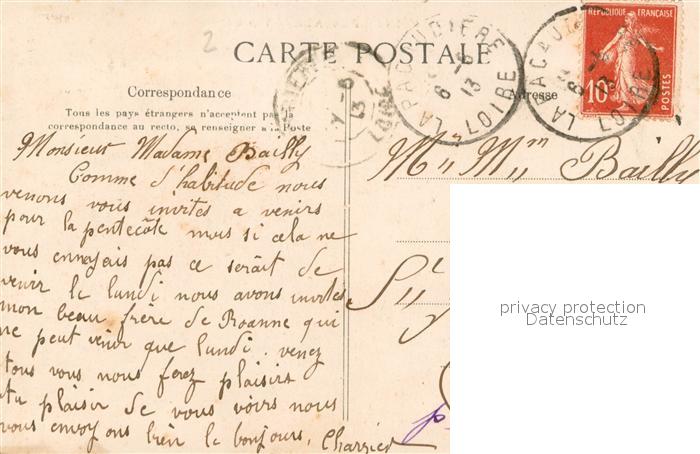 2
CARTE POSTALE
Correspondance
Tous les pays étrangers n'acceptent pas la
correspondance au recto, se renseigner à la Poste
Adresse
RÉPUBLIQUE FRANÇAISE
10c
POSTES
LA PACAUDIÈRE
6 -6
13
LOIRE
LA PACAUDIÈRE
13
LOIRE
-6
13
LOIRE
Monsieur Madame Bailly
Comme d'habitude nous
venons vous invites a venirs
pour la pentecôte mais si cela ne
vous ennojais pas ce serait de
venir le lundi nous avons invites
mon beau frère de Roanne qui
ne peut venir que lundi. venez
tous vous nous ferez plaisirs
Au plaisir de vous voirs nous
vous envoyons bien le bonjours,
Mr Mm Bailly
St
privacy protection
Datenschutz